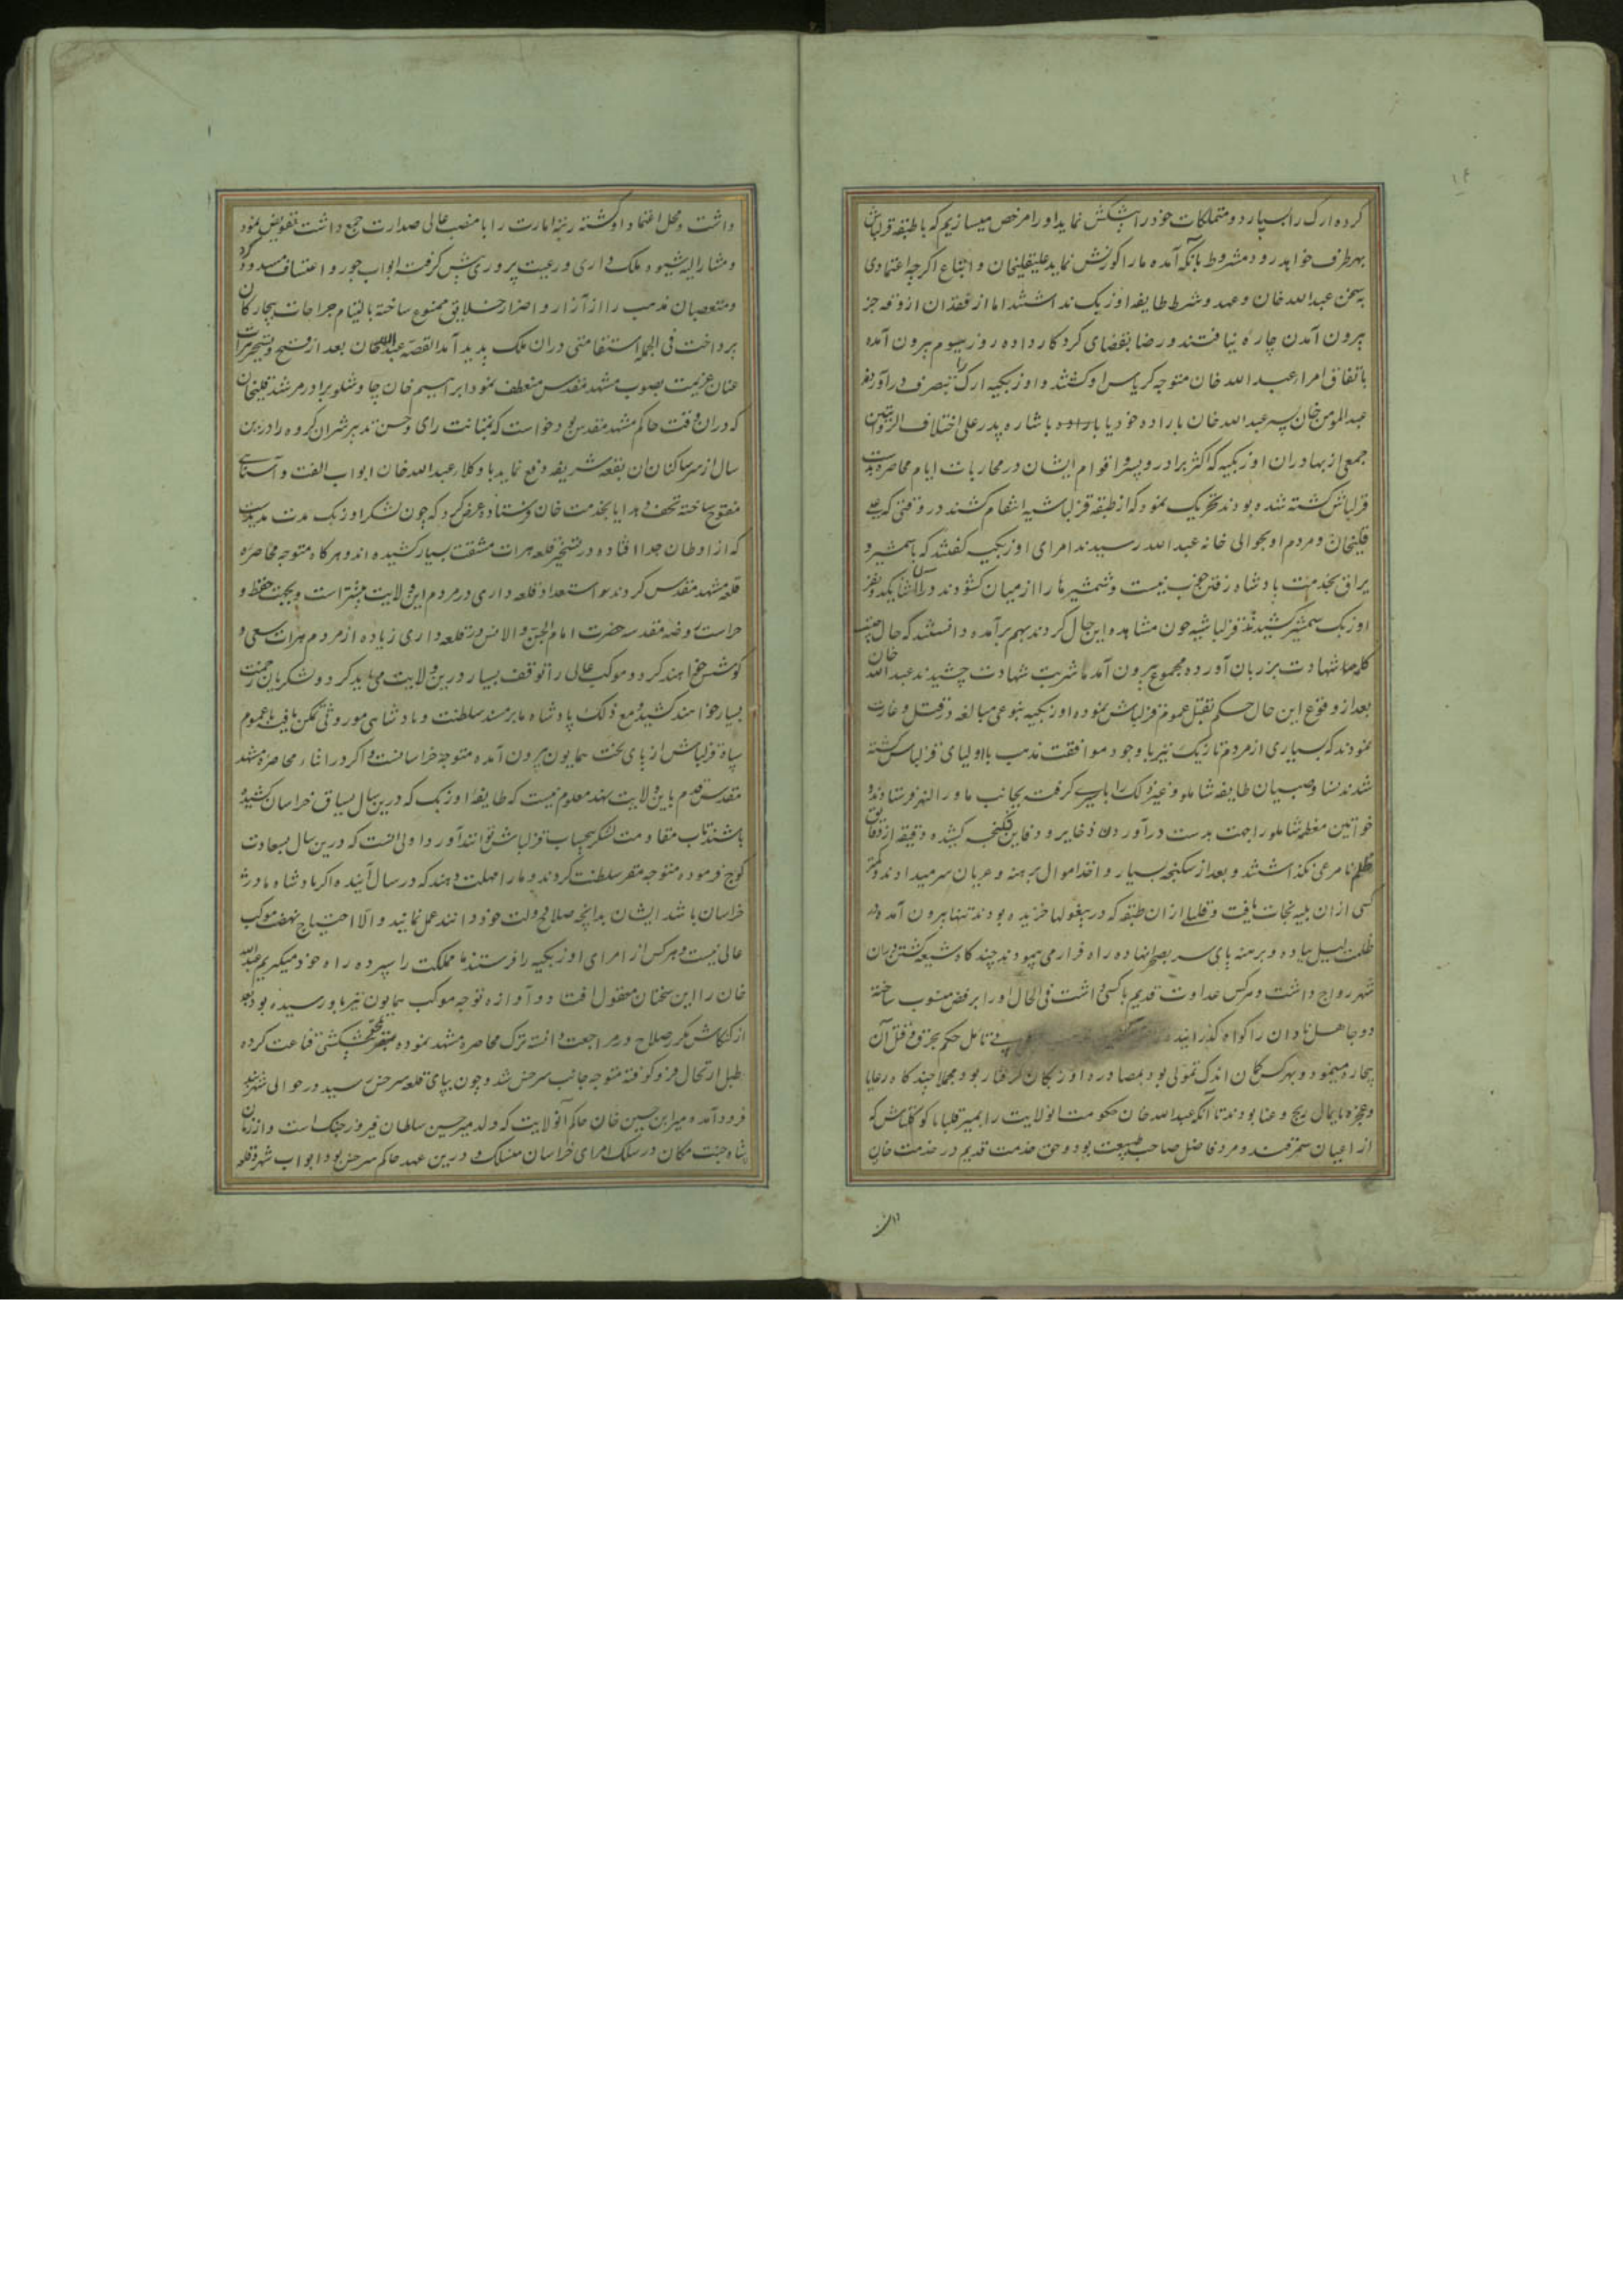 کرده ارک را بسپارد و متملکات خود را پیشکش نماید او را مرخص میسازیم که با طبقه قزلباش
بهر طرف خواهد رود مشروط بآنکه آمده ما را کورنش نماید علیقلیخان و اتباع اگرچه اعتمادی
بسخن عبدالله خان و عهد و شرط طایفه اوزبک نداشتند اما از فقدان آذوقه جز
بیرون آمدن چاره نیافتند و رضا بقضای کردکار داده روز سیوم بیرون آمده
باتفاق امرا عبدالله خان متوجه کریاس او کشتند و اوزبکیه ارک را بتصرف درآوردند
عبدالمومن خان پسر عبدالله خان باراده خود یا باشاره پدر علی اختلاف الروایتین
جمعی از بهادران اوزبکیه که اکثر برادر و پسر و اقوام ایشان در محاربات ایام محاصره بدست
قزلباش کشته شده بودند تحریک نمود که از طبقه قزلباشیه انتقام کشند در وقتی که علی
قلیخان و مردم او بحوالی خانه عبدالله رسیدند امرای اوزبکیه کفتند که با شمشیر و
یراق بخدمت پادشاه رفتن خوب نیست و شمشیرها را از میان کشودند در آن اثنا یکدو نفر
اوزبک شمشیر کشیدند قزلباشیه چون مشاهده این حال کردند بهم برآمده دانستند که حال چیست
کلمه شهادت بر زبان آورده مجموع بیرون آمدها شربت شهادت چشیدند عبدالله خان
بعد از وقوع این حال حکم بقتل عموم قزلباش نموده اوزبکیه بنوعی مبالغه در قتل و غارت
نمودند که بسیاری از مردم تازیک نیز با وجود موافقت مذهب با اولیای قزلباش کشته
شدند نسا و صبیان طایفه شاملو و غیر ذلک را باسیری کرفته بجانب ماوراالنهر فرستادند و
خواتین معظمه شاملو را جهت بدست درآوردن ذخایر و دفاین شکنجه کشیده دقیقه از دقایق
ظلم نامرعی نکذاشتند و بعد از شکنجه بسیار و اخذ اموال برهنه و عریان سر میدادند و کمتر
کسی از ان بلیه نجات یافت و قلیلی از ان طبقه که در بیغولها خزیده بودند تنها بیرون آمده در
ظلمت لیل پیاده و برهنه پای سر بصحرا نهاده راه فرار می پیمودند چند کاه شیعه کشتن در ان
شهر رواج داشت و هرکس عداوت قدیم با کسی داشت فی الحال او را برفض منسوب ساخته
دو جاهل نادان را کواه کذرانیده بی تامل حکم بحرق و قتل آن
بیچاره مینمود و بهرکس کمان اندک تمولی بود بمصادره اوزبکان کرفتار بود مجملا چند کاه رعایا
و عجزه پایمال رنج و عنا بودند تا آنکه عبدالله خان حکومت آنولایت را بمیر قلبابا کوکلتاش که
از اعیان سمرقند و مرد فاضل صاحب طبیعت بود و حق خدمت قدیم در خدمت خان
داشت و محل اعتماد او کشته رتبه امارت را با منصب عالی صدارت جمع داشت تفویض نمود
و مشارالیه شیوه ملک داری و رعیت پروری پیش کرفته ابواب جور و اعتساف مسدود کرد
و متعصبان مذهب را از آزار و اضرار خلایق ممنوع ساخته بالتیام جراحات بیچارکان
پرداخت فی الجمله استقامتی در ان ملک پدید آمد القصه عبدالله خان بعد از فتح و تسخیر هرات
عنان عزیمت بصوب مشهد مقدس منعطف نمود ابراهیم خان چاوشلو برادر مرشد قلیخان
که در ان وقت حاکم مشهد مقدس بود خواست که بمتانت رای و حسن تدبیر شر ان کروه را در این
سال از سر ساکنان ان بقعه شریفه دفع نماید با وکلا عبدالله خان ابواب الفت و آشنایی
مفتوح ساخته تحف و هدایا بخدمت خان فرستاده عرض کرد که چون لشکر اوزبک مدت مدیدیست
که از اوطان جدا افتاده و در تسخیر قلعه هرات مشقت بسیار کشیده اند و هرکاه متوجه محاصره
قلعه مشهد مقدس کردند استعداد قلعه داری در مردم این ولایت بیشتر است و بجهت حفظ و
حراست روضه مقدسه حضرت امام الجن و الانس در قلعه داری زیاده از مردم هرات سعی و
کوشش خواهند کرد و موکب عالی را توقف بسیار درین ولایت می باید کرد و لشکریان زحمت
بسیار خواهند کشید و مع ذلک پادشاه ما بر مسند سلطنت و پادشاهی موروثی تمکن یافته با عموم
سپاه قزلباش از پای تخت همایون بیرون آمده متوجه خراسانست و اکر در اثنا محاصره مشهد
مقدس قدم باین ولایت نهند معلوم نیست که طایفه اوزبک که درین سال یساق خراسان کشیده
باشند تاب مقاومت لشکر بیحساب قزلباش توانند آورد اولی انست که درین سال بسعادت
کوچ فرموده متوجه مقر سلطنت کردند و ما را مهلت دهند که در سال آینده اکر پادشاه ما در
خراسان باشد ایشان بدانچه صلاح دولت خود دانند عمل نمایند و الا احتیاج نهضت موکب
عالی نیست و هرکس از امرای اوزبکیه را فرستند ما مملکت را سپرده راه خود میکیریم عبدالله
خان را این سخنان معقول افتاد و آوازه توجه موکب همایون نیز باو رسیده بود بعد
از کنکاش مکرر صلاح در مراجعت دانسته ترک محاصره مشهد نموده بمختصر پیشکشی قناعت کرده
طبل ارتحال فرو کوفته متوجه جانب سرخس شد و چون بپای قلعه سرخس رسید در حوالی شهر بند
فرود آمده میر ابن حسین خان حاکم آنولایت که ولد میر حسین سلطان فیروز جنک است و از زمان
شاه جنت مکان در سلک امرای خراسان منسلک و درین عهد حاکم سرخس بود ابواب شهر و قلعه